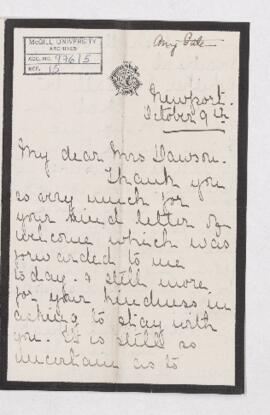 McGILL UNIVERSITY
ARCHIVES
ACC. NO. 976/5
REF. 15
Newport.
October 9th
My dear Mrs Dawson.
Thank you
so very much for
your kind letter of
welcome which was
forwarded to me
to day. & still more
for your kindness in
asking to stay with
you. It is still so
uncertain as to